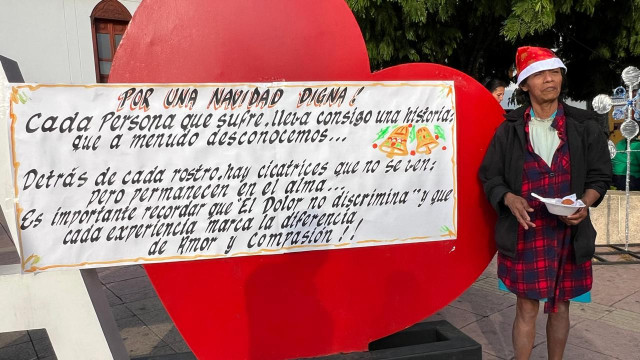 POR UNA NAVIDAD DIGNA!
Cada Persona que sufre, lleva consigo una historia,
que a menudo desconocemos...
Detrás de cada rostro, hay cicatrices que no se ven;
Pero permanecen en el alma...
Es importante recordar que "El Dolor no discrimina" y que
cada experiencia marca la diferencia,
de Amor y Compasión !!